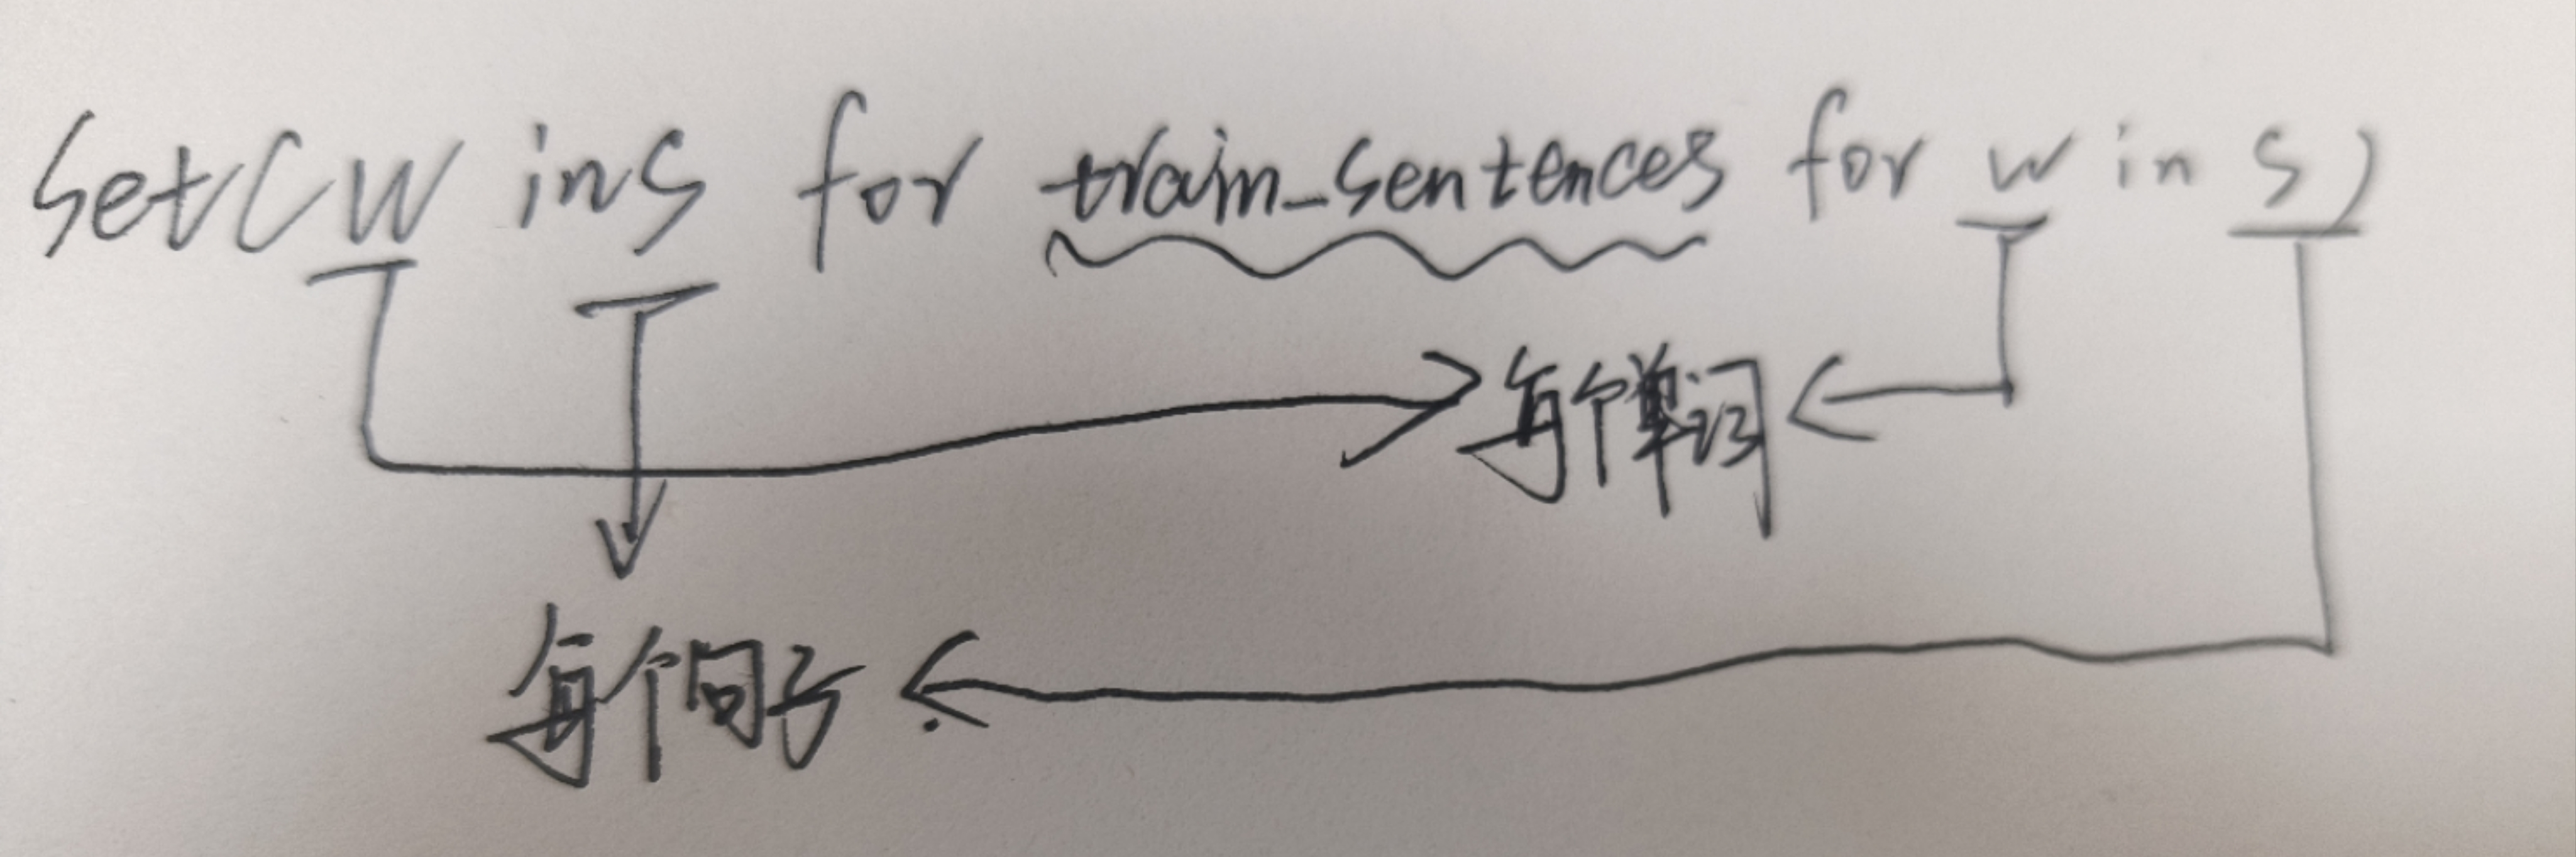 set(w in s for train_sentences for w in s)
每个单词
每个句子